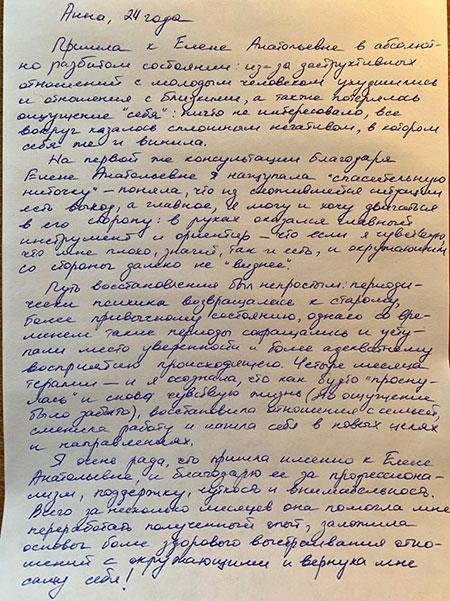 Анна, 24 года
Пришла к Елене Анатольевне в абсолют-
но разбитом состоянии: из-за деструктивных
отношений с молодым человеком ухудшились
и отношения с близкими, а также потерялось
ощущение "себя": ничто не интересовало, все
вокруг казалось сплошным негативом, в котором
себя же и винила.
На первой же консультации благодаря
Елене Анатольевне я нащупала "спасательную
ниточку" – поняла, что из сложившейся ситуации
есть выход, а главное, я могу и хочу двигаться
в его сторону: в руках оказался главный
инструмент и ориентир – что если я чувствую,
что мне плохо, значит, так и есть, и окружающим
со стороны далеко не "виднее".
Путь восстановления был непростым: периоди-
чески психика возвращалась к старому,
более привычному состоянию, однако со вре-
менем такие периоды сокращались и усту-
пали место уверенности и более адекватному
восприятию происходящего. Четыре месяца
терапии – и я осознала, что как будто "просну-
лась" и снова чувствую жизнь (это ощущение
было забыто), восстановила отношения с семьей,
сменила работу и нашла себя в новых целях
и направлениях.
Я очень рада, что пришла именно к Елене
Анатольевне, и благодарю ее за профессиона-
лизм, поддержку, чуткость и внимательность.
Всего за несколько месяцев она помогла мне
переработать полученный опыт, заложила
основы более здорового выстраивания отно-
шений с окружающими и вернула мне
саму себя!